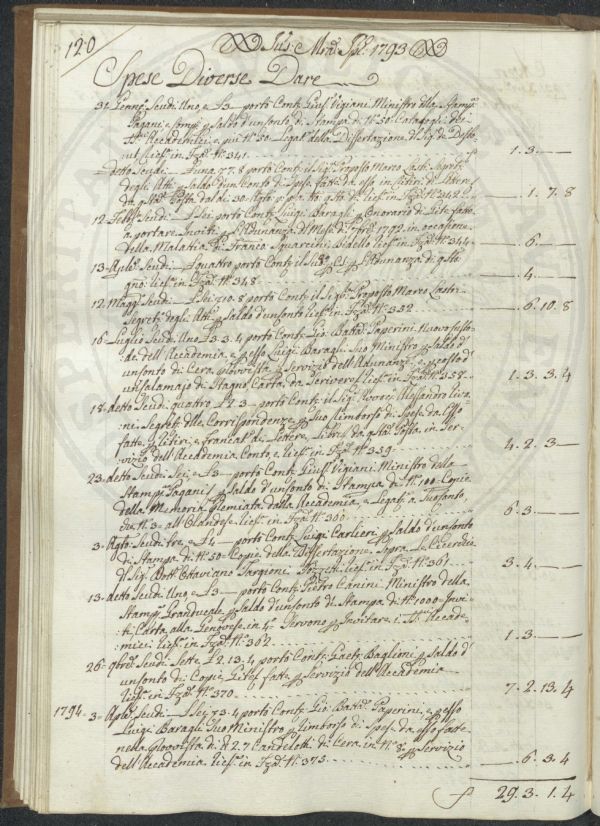 120
Jus: Mrā: Spl: 1793
Spese Diverse Dare
31. Genn: Scudi Uno, e £3. portò Cont: Gius: Vigiani Ministro della Stamp:
Pagani, e Comp: p Saldo d'un Conto di Stampa di N: 50 Catalogi de
Accademici, e più N: 50 Legat: della Dissertazione d' Sig: De
in Fza N: 341 1. 3. —
detto Scudi — £ Una. 7. 8 portò Cont: il Sig: Proposto Marco Lastri Segret:
degli Atti p Saldo d'un Conto di Spese fatte da esso in di Lettere
da Posta dal di 30 in Fza N: 342 — 1. 7. 8
12. Febb: Scudi — £ Sei, portò Cont: Luigi Baragli p Onorario di Gite fatte
a portare Inviti p l'Adunanza d' Mese di 1792 in occasione
della Malatia di Franco Squarcini Bidello in Fza N: 344 — 6. —
13. Aple: Scudi — £ quattro portò Cont: il Sud: p l'Adunanza di
gno in Fza N: 348 — 4. —
12. Magg: Scudi — £ Sei 10. 8 portò Cont: il Sig: Proposto Marco Lastri
Segret: degli Atti p Saldo d'un Conto in Fza N: 352 — 6. 10. 8
16. Luglio Scudi Uno £3. 3. 4 portò Cont: Gio: Batta: Paperini Nuovo Custo-
de dell'Accademia, e p esso Luigi Baragli Suo Ministro p Saldo d'
un Conto di Cera, provvista p Servizio dell'Adunanze, e prezzo d'
un Calamajo di Stagno, Carta da Scrivere in Fza N: 358 1. 3. 3. 4
18. detto Scudi quattro £2. 3 — portò Cont: il Sig: Alessandro
ni Segret: dlle Corrispondenze p Suo rimborso di Spese da Esso
fatte p ritiri, e francat: di Lettere, Libri da Posta in Ser-
vizio dell'Accademia Conto, e in Fza N: 359 4. 2. 3 —
23. detto Scudi Sei, e £3 — portò Cont: Gius: Vigiani Ministro della
Stamp: Pagani p Saldo d'un Conto di Stampa di N: 400 Copie
della Memoria Premiata dalla Accademia, e Legat: a
N: 3 all'Olandese in Fza N: 360 6. 3. —
3. Agto: Scudi tre, e £4 — portò Cont: Luigi Carlieri p Saldo d'un Conto
di Stampa di N: 50 Copie della Dissertazione Sopra le Cicerchie
d' Sig: Dott: Ottaviano Targioni Tozzetti in Fza N: 361 3. 4. —
13. detto Scudi Uno, e £3 — portò Cont: Pietro Canini Ministro della
Stamp: Granducale p Saldo d'un Conto di Stampa di N: 1000 Invi-
ti Carta alla Genovese in 4: Servono p Invitare i Accade-
mici in Fza N: 362 1. 3 —
26. Scudi Sette £2. 13. 4 portò Cont: Gaet: Baglioni p Saldo d'
un Conto di Copie, e fatt: p Servizio dell'Accademia
in Fza N: 370 7. 2. 13. 4
1794. 3. Aple: Scudi — £ Sei, 3. 4 portò Cont: Gio: Batta: Paperini, e p esso
Luigi Baragli Suo Ministro p rimborso di Spes: da esso fatte
nella provvista di 2. 7 Candelotti di Cera in N: 8 p Servizio
dell'Accademia in Fza N: 373 — 6. 3. 4
29. 3. 1. 4